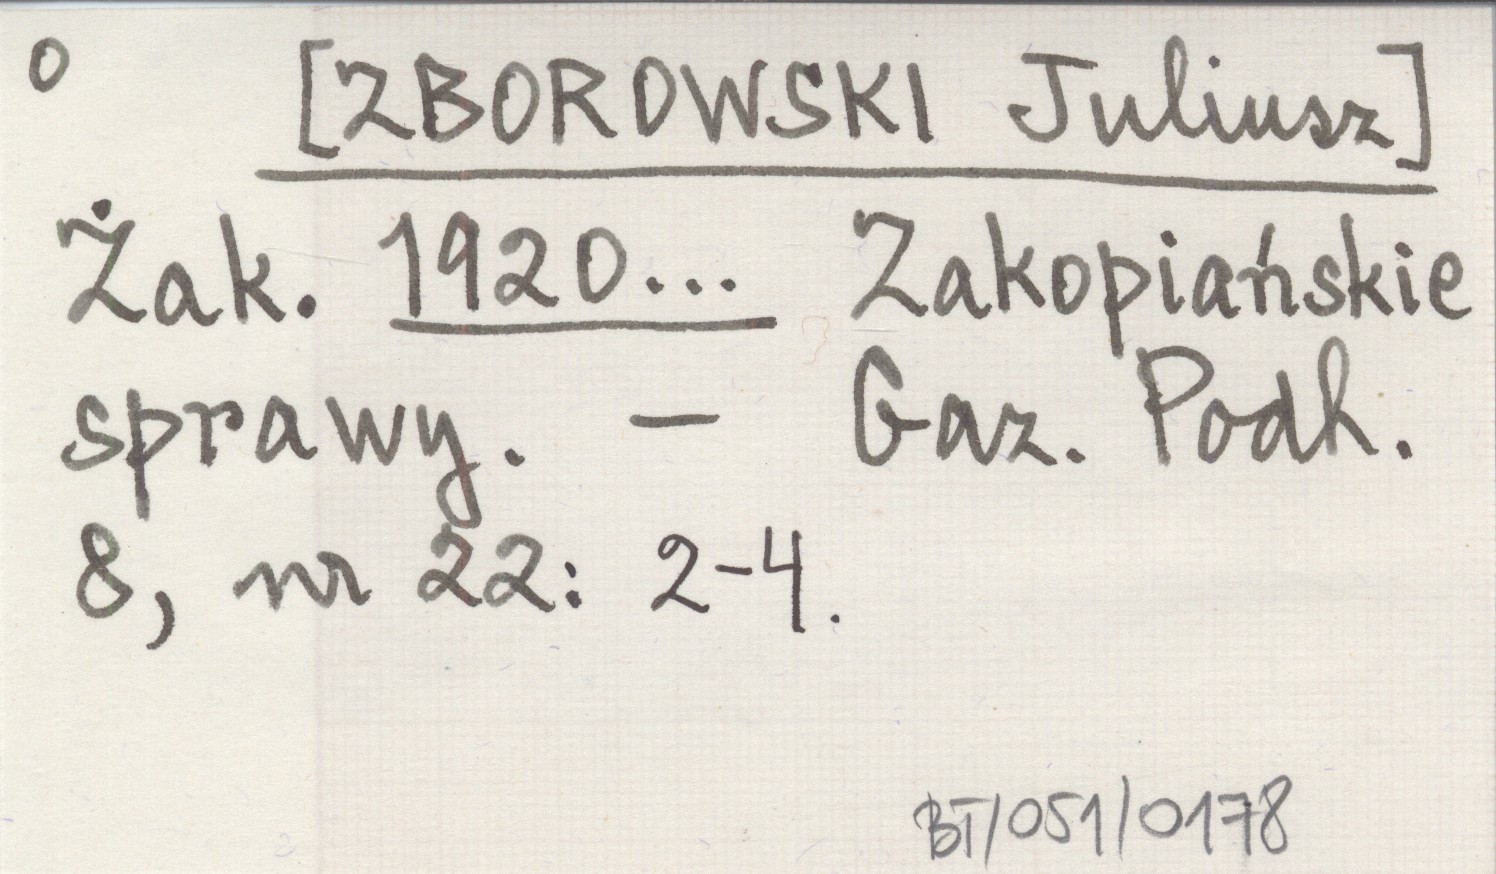 o [ZBOROWSKI Juliusz]
Żak. 1920... Zakopiańskie
sprawy. — Gaz. Podh.
8, nr 22: 2-4.
BT/051/0178